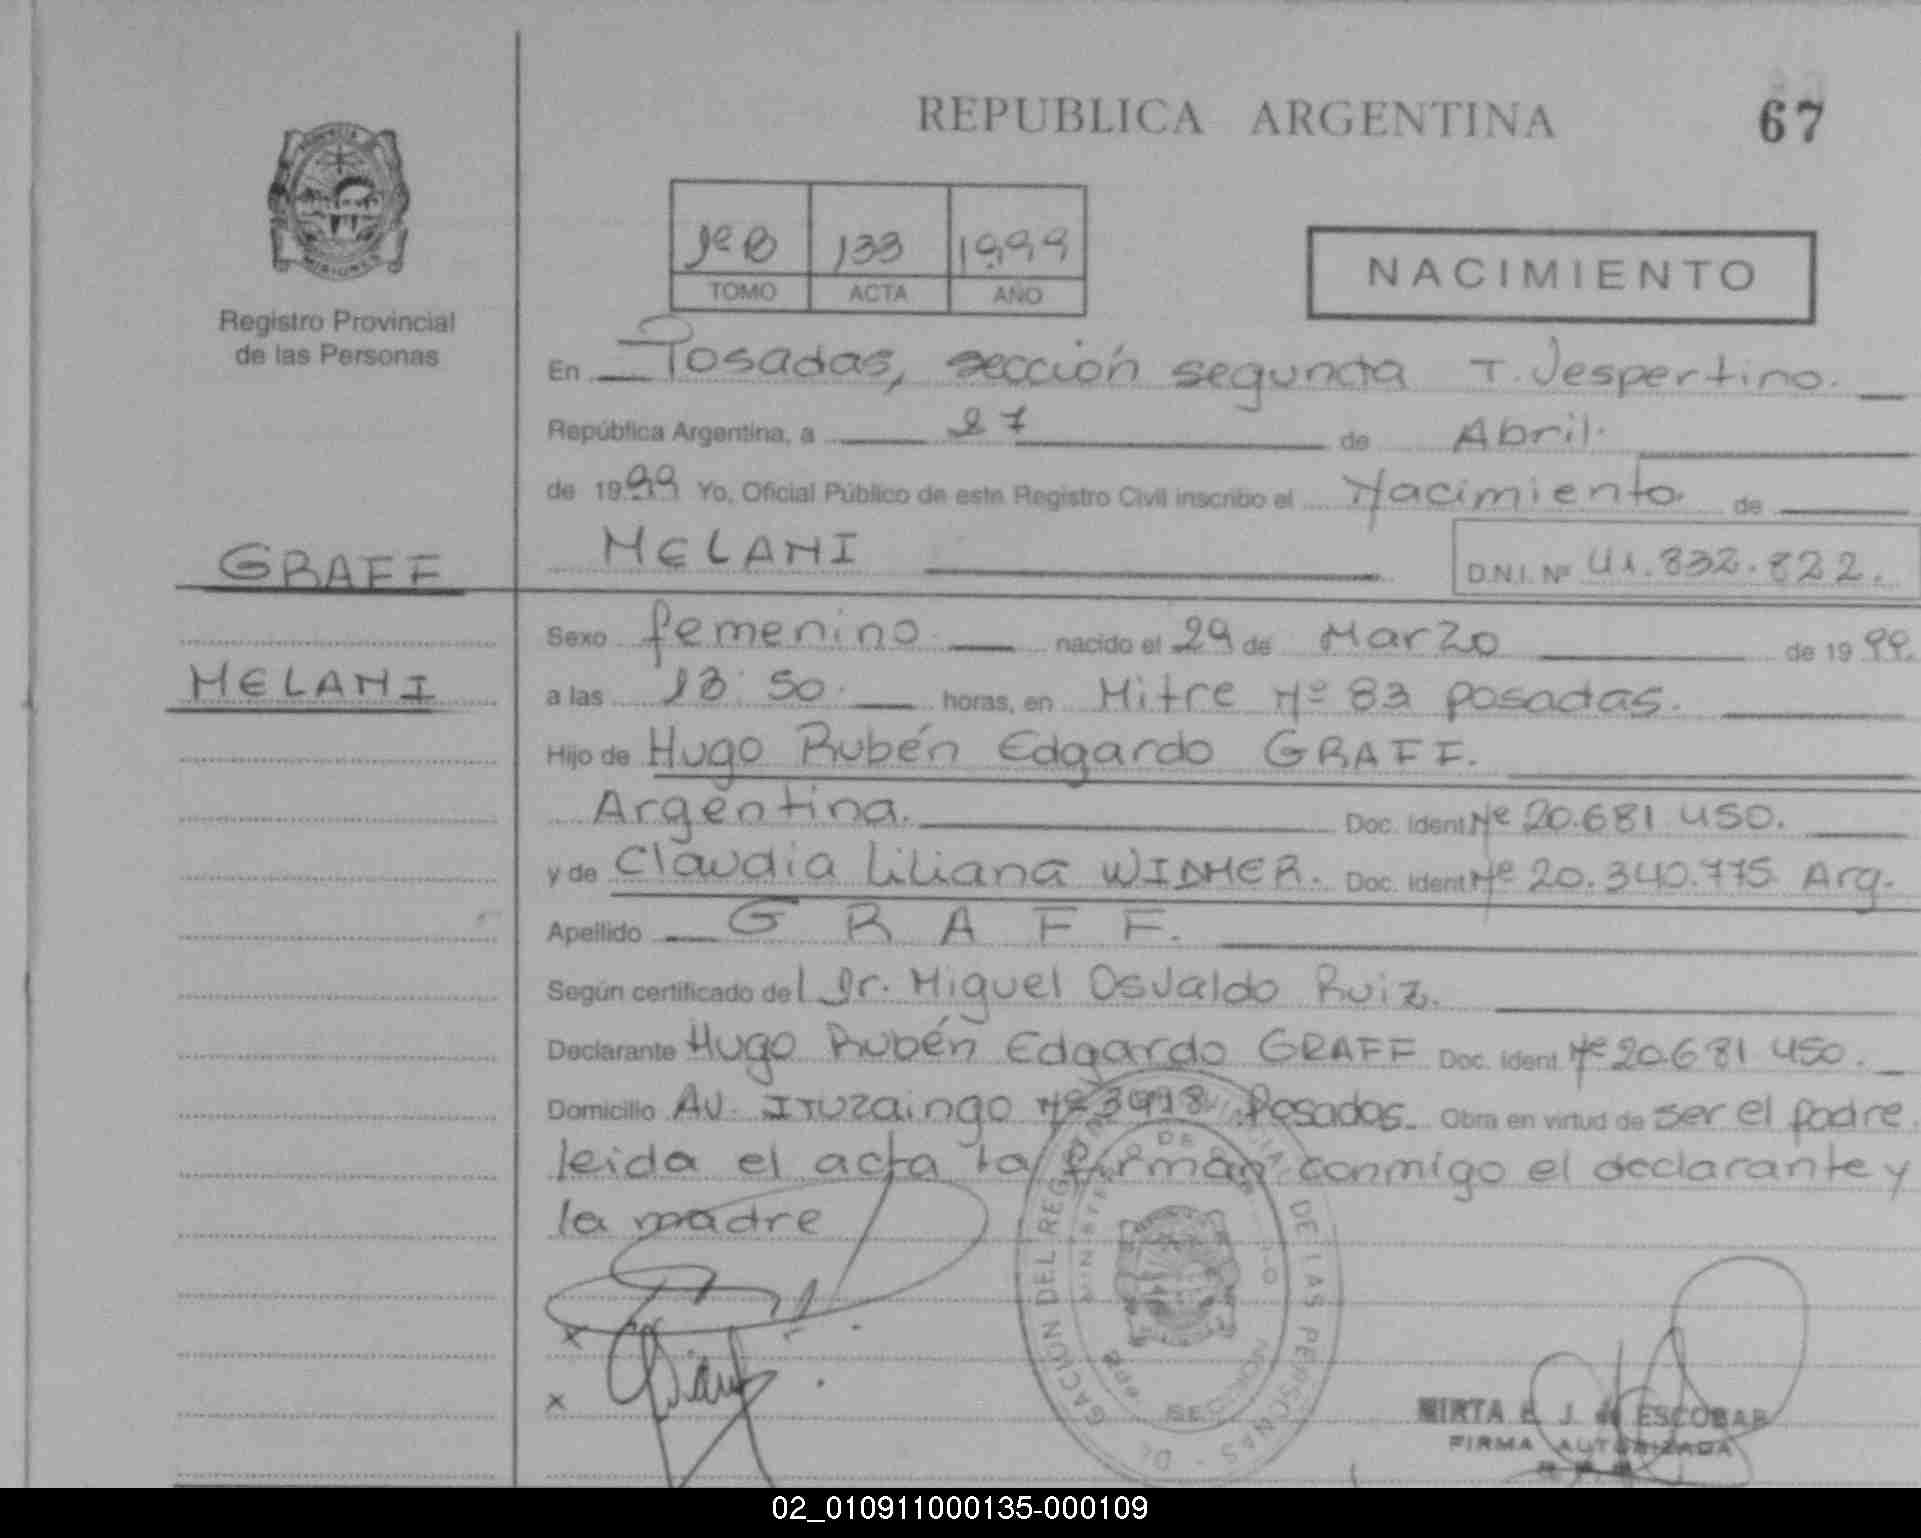 REPUBLICA ARGENTINA 67
1º B 133 1999
TOMO ACTA AÑO
NACIMIENTO
Registro Provincial
de las Personas
En Posadas, sección segunda T. Vespertino.
República Argentina, a 27 de Abril.
de 1999 Yo, Oficial Público de este Registro Civil inscribo el Nacimiento. de
GRAFF
MELANI D.N.I. Nº 41.832.822.
Sexo femenino. nacido el 29 de Marzo de 1999.
MELANI
a las 13:50. horas, en Mitre Nº 83 posadas.
Hijo de Hugo Rubén Edgardo GRAFF.
Argentina. Doc. Ident Nº 20.681 450.
y de Claudia Liliana WIDMER. Doc. Ident Nº 20.340.775 Arg.
Apellido GRAFF.
Según certificado del Dr. Miguel Osvaldo Ruiz.
Declarante Hugo Rubén Edgardo GRAFF Doc. Ident. Nº 20.681 450.
Domicilio Av. Ituzaingo Nº Posadas. Obra en virtud de ser el padre.
leida el acta la firman conmigo el declarante y
la madre
DEL REG DE LAS PERSONAS
SECCION
MIRTA E. J. de ESCOBAR
FIRMA AUTORIZADA
02_010911000135-000109